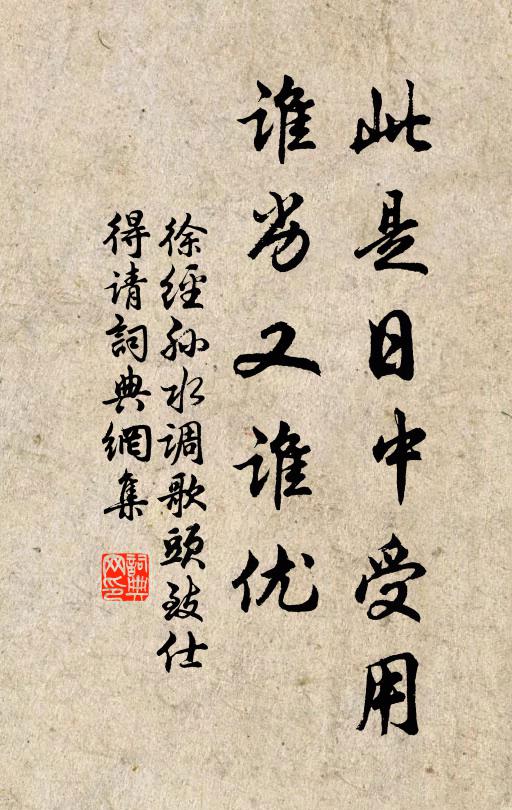 此是日中受用
谁劣又谁优
徐經孙水调歌頭致仕
得请詞典網集
詞典网印